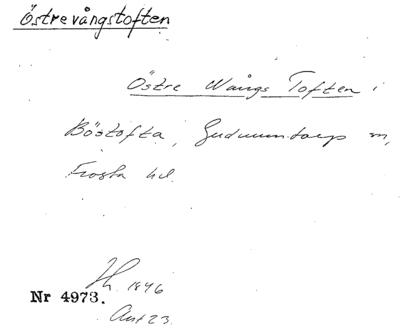 Östrevångstoften
Östre Wångs Toften i
Böstofta, Gudmuntorps sn,
Frosta hd.
1846
Nr 4973.
Akt 23.